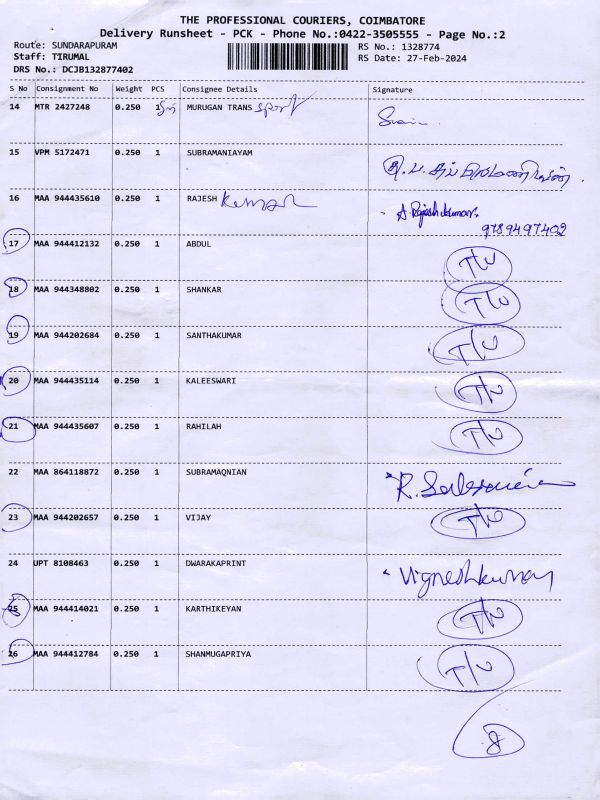 THE PROFESSIONAL COURIERS, COIMBATORE
Delivery Runsheet - PCK - Phone No.:0422-3505555 - Page No.:2
Route: SUNDARAPURAM
RS No.: 1328774
Staff: TIRUMAL
RS Date: 27-Feb-2024
DRS No.: DCJB132877402
S No Consignment No Weight PCS Consignee Details Signature
14 MTR 2427248 0.250 1 MURUGAN TRANS sport
15 VPM 5172471 0.250 1 SUBRAMANIAYAM
16 MAA 944435610 0.250 1 RAJESH Kumar A. Rajesh kumar.
9789497402
17 MAA 944412132 0.250 1 ABDUL T/U
18 MAA 944348802 0.250 1 SHANKAR T/U
19 MAA 944202684 0.250 1 SANTHAKUMAR T/U
20 MAA 944435114 0.250 1 KALEESWARI T/U
21 MAA 944435607 0.250 1 RAHILAH T/U
22 MAA 864118872 0.250 1 SUBRAMAQNIAN R.
23 MAA 944202657 0.250 1 VIJAY T/U
24 UPT 8108463 0.250 1 DWARAKAPRINT Vigneshkumar
25 MAA 944414021 0.250 1 KARTHIKEYAN T/U
26 MAA 944412784 0.250 1 SHANMUGAPRIYA T/U
8